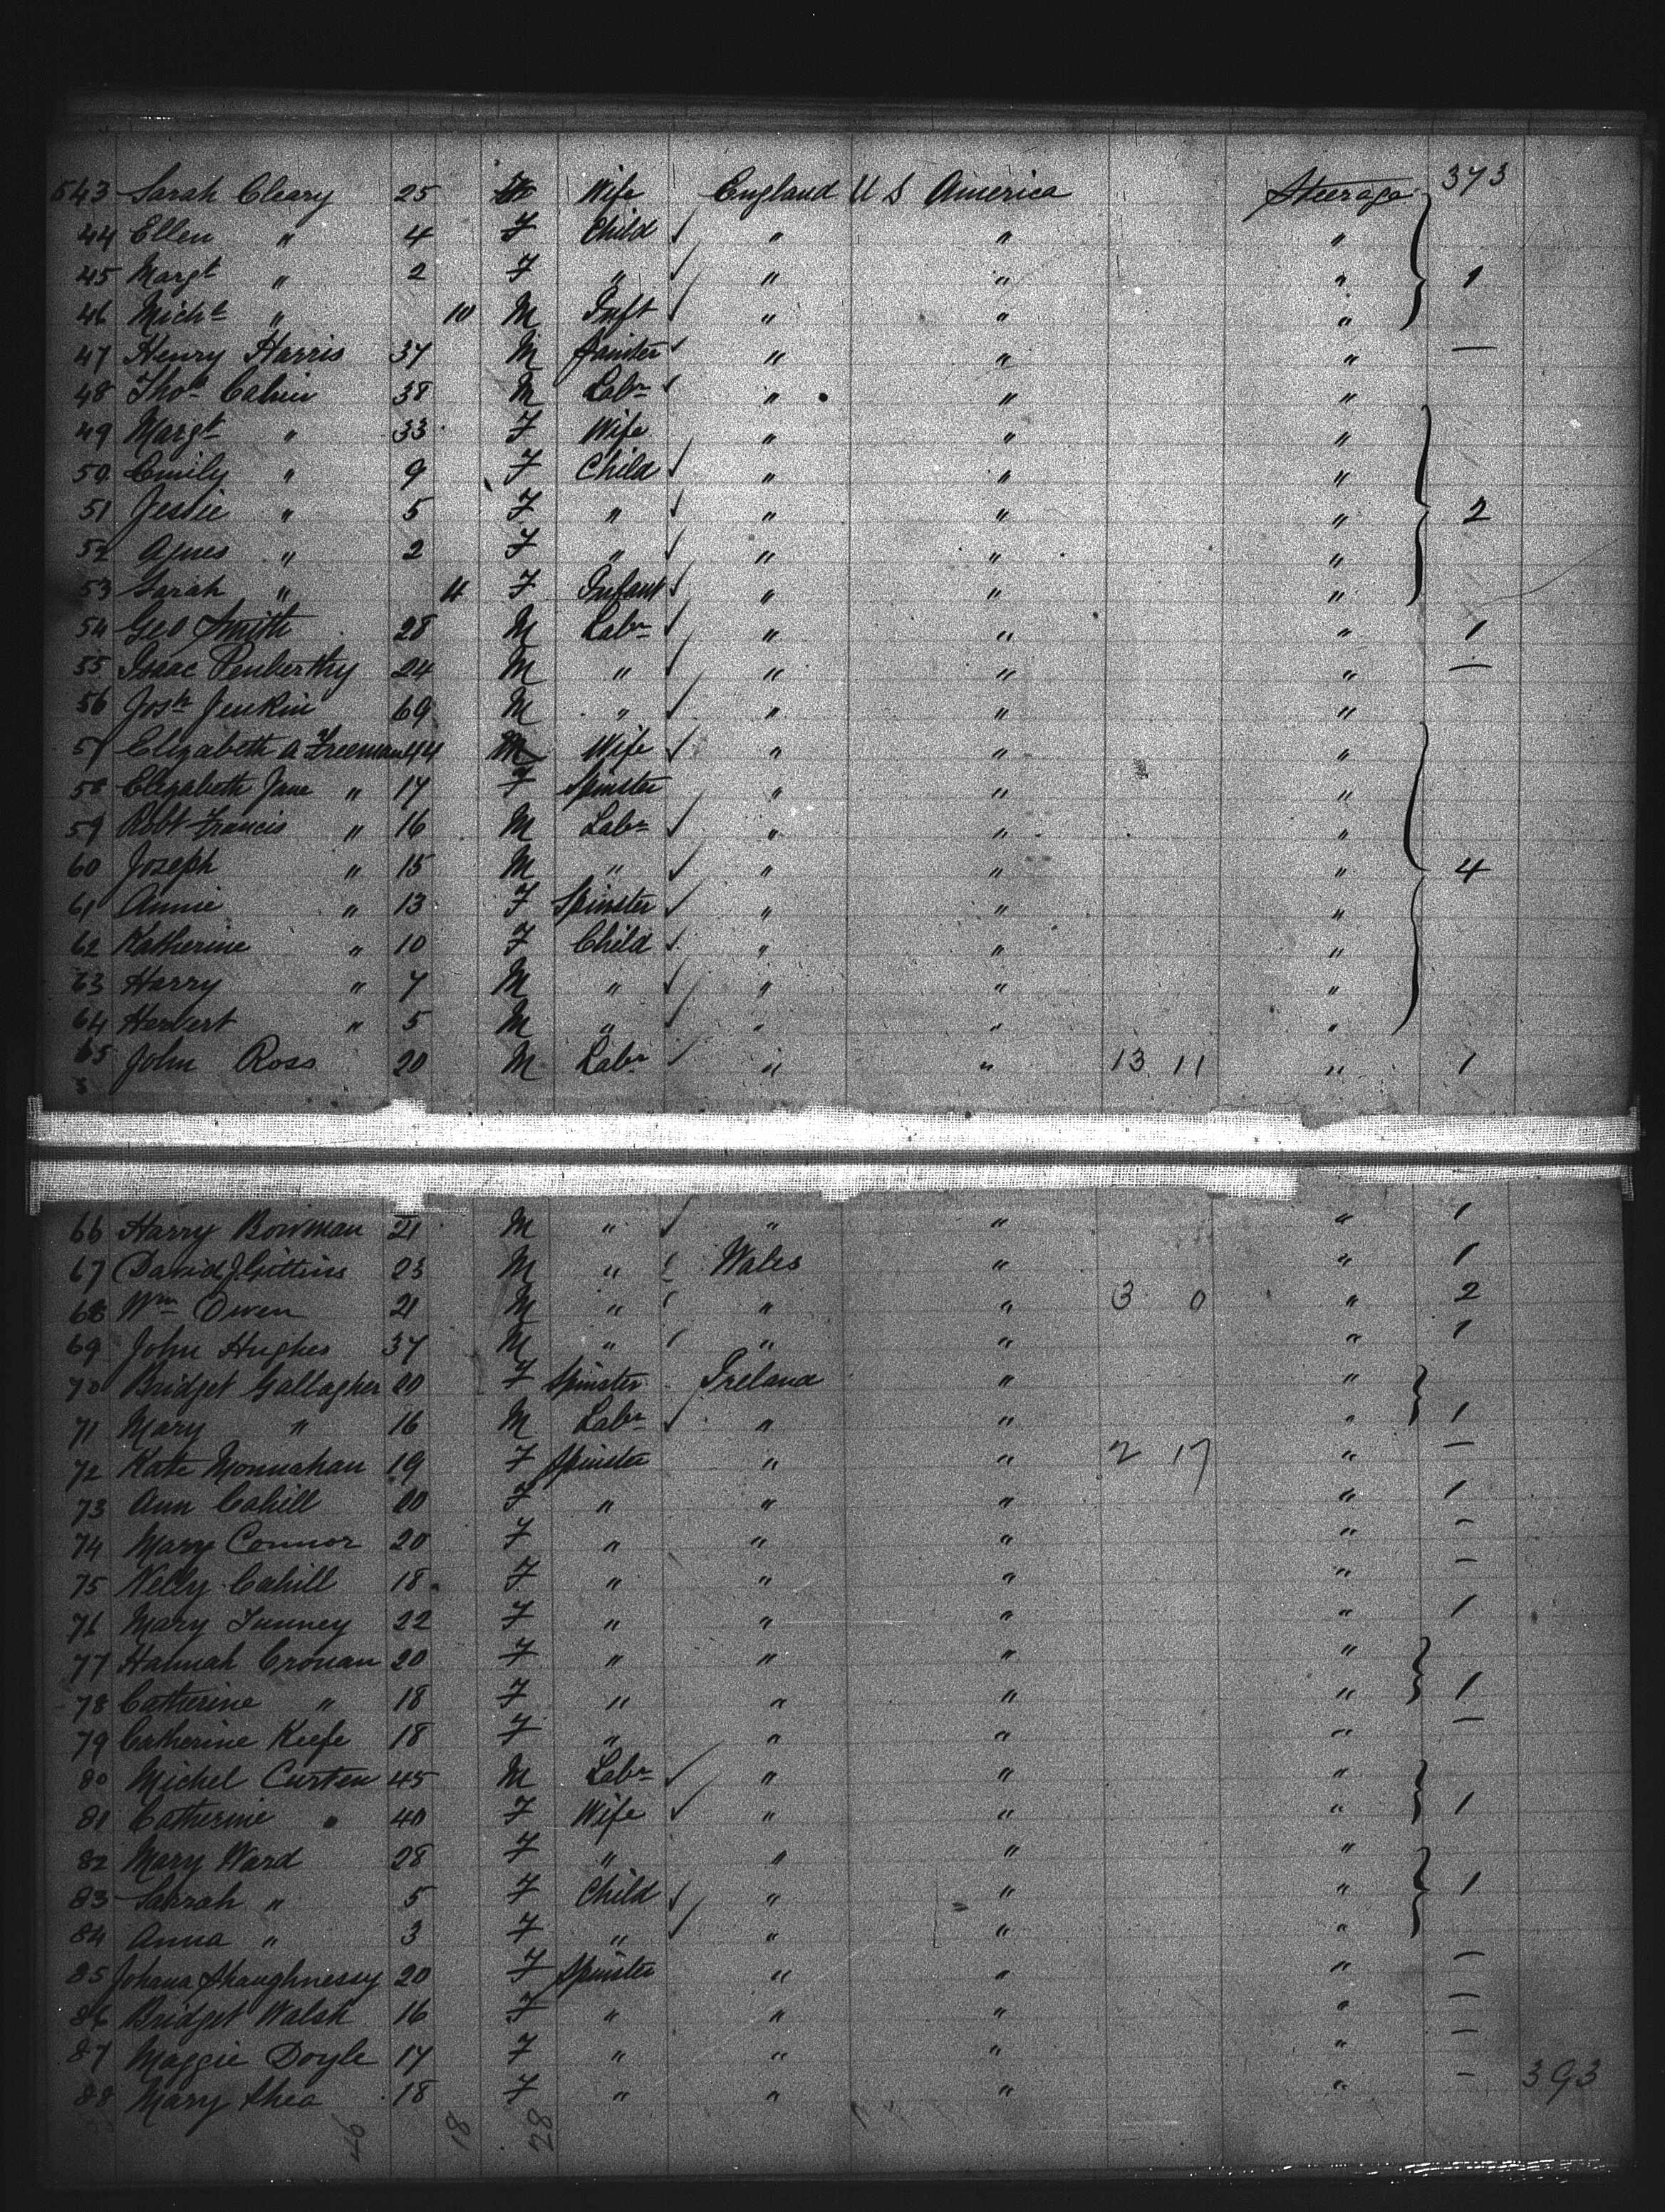 543 Sarah Cleary 25 F Wife England U S America Steerage 373
44 Ellen " 4 F Child ✓ " " "
45 Margt " 2 F " ✓ " " " 1
46 Michl " 10 M Inft ✓ " " "
47 Henry Harris 37 M ✓ " " " —
48 Thos 38 M Labr ✓ " " "
49 Margt " 33 F Wife " " "
50 Emily " 9 F Child ✓ " " "
51 Jessie " 5 F " ✓ " " " 2
52 Agnes " 2 F " ✓ " " "
53 Sarah " 11 F Infant ✓ " " "
54 Geo Smith 28 M Labr ✓ " " " 1
55 Isaac Penberthy 24 M " ✓ " " " —
56 Josh Jenkin 69 M " ✓ " " "
57 Elizabeth A Freeman 44 M Wife ✓ " " "
58 Elizabeth Jane " 17 F Spinster " " "
59 Robt Francis " 16 M Labr ✓ " " "
60 Joseph " 15 M " ✓ " " " 4
61 Annie " 13 F Spinster ✓ " " "
62 Katherine " 10 F Child ✓ " " "
63 Harry " 7 M " ✓ " " "
64 Herbert " 5 M " ✓ " " "
65 John Ross 20 M Labr ✓ " " 13 11 " 1
66 Harry Bowman 21 M " ✓ " " " 1
67 David J Gittins 23 M " Wales " " 1
68 Wm Owen 21 M " " " 3 0 " 2
69 John Hughes 37 M " " " " 1
70 Bridget Gallagher 20 F Spinster Ireland " "
71 Mary " 16 M Labr ✓ " " " 1
72 Kate Monnahan 19 F Spinster " " 2 17 " —
73 Ann Cahill 20 F " " " " 1
74 Mary Connor 20 F " " " " —
75 Nelly Cahill 18 F " " " " —
76 Mary Tunney 22 F " " " " 1
77 Hannah Cronan 20 F " " " "
78 Catherine " 18 F " " " " 1
79 Catherine Keefe 18 F " " " " —
80 Michel Curten 45 M Labr ✓ " " "
81 Catherine " 40 F Wife ✓ " " " 1
82 Mary Ward 28 F " " " "
83 Sarrah " 5 F Child ✓ " " " 1
84 Anna " 3 F " ✓ " " "
85 Johana Shaughnessy 20 F Spinster " " " —
86 Bridget Walsh 16 F " " " " —
87 Maggie Doyle 17 F " " " " —
88 Mary Shea 18 F " " " " — 393
46 18 28